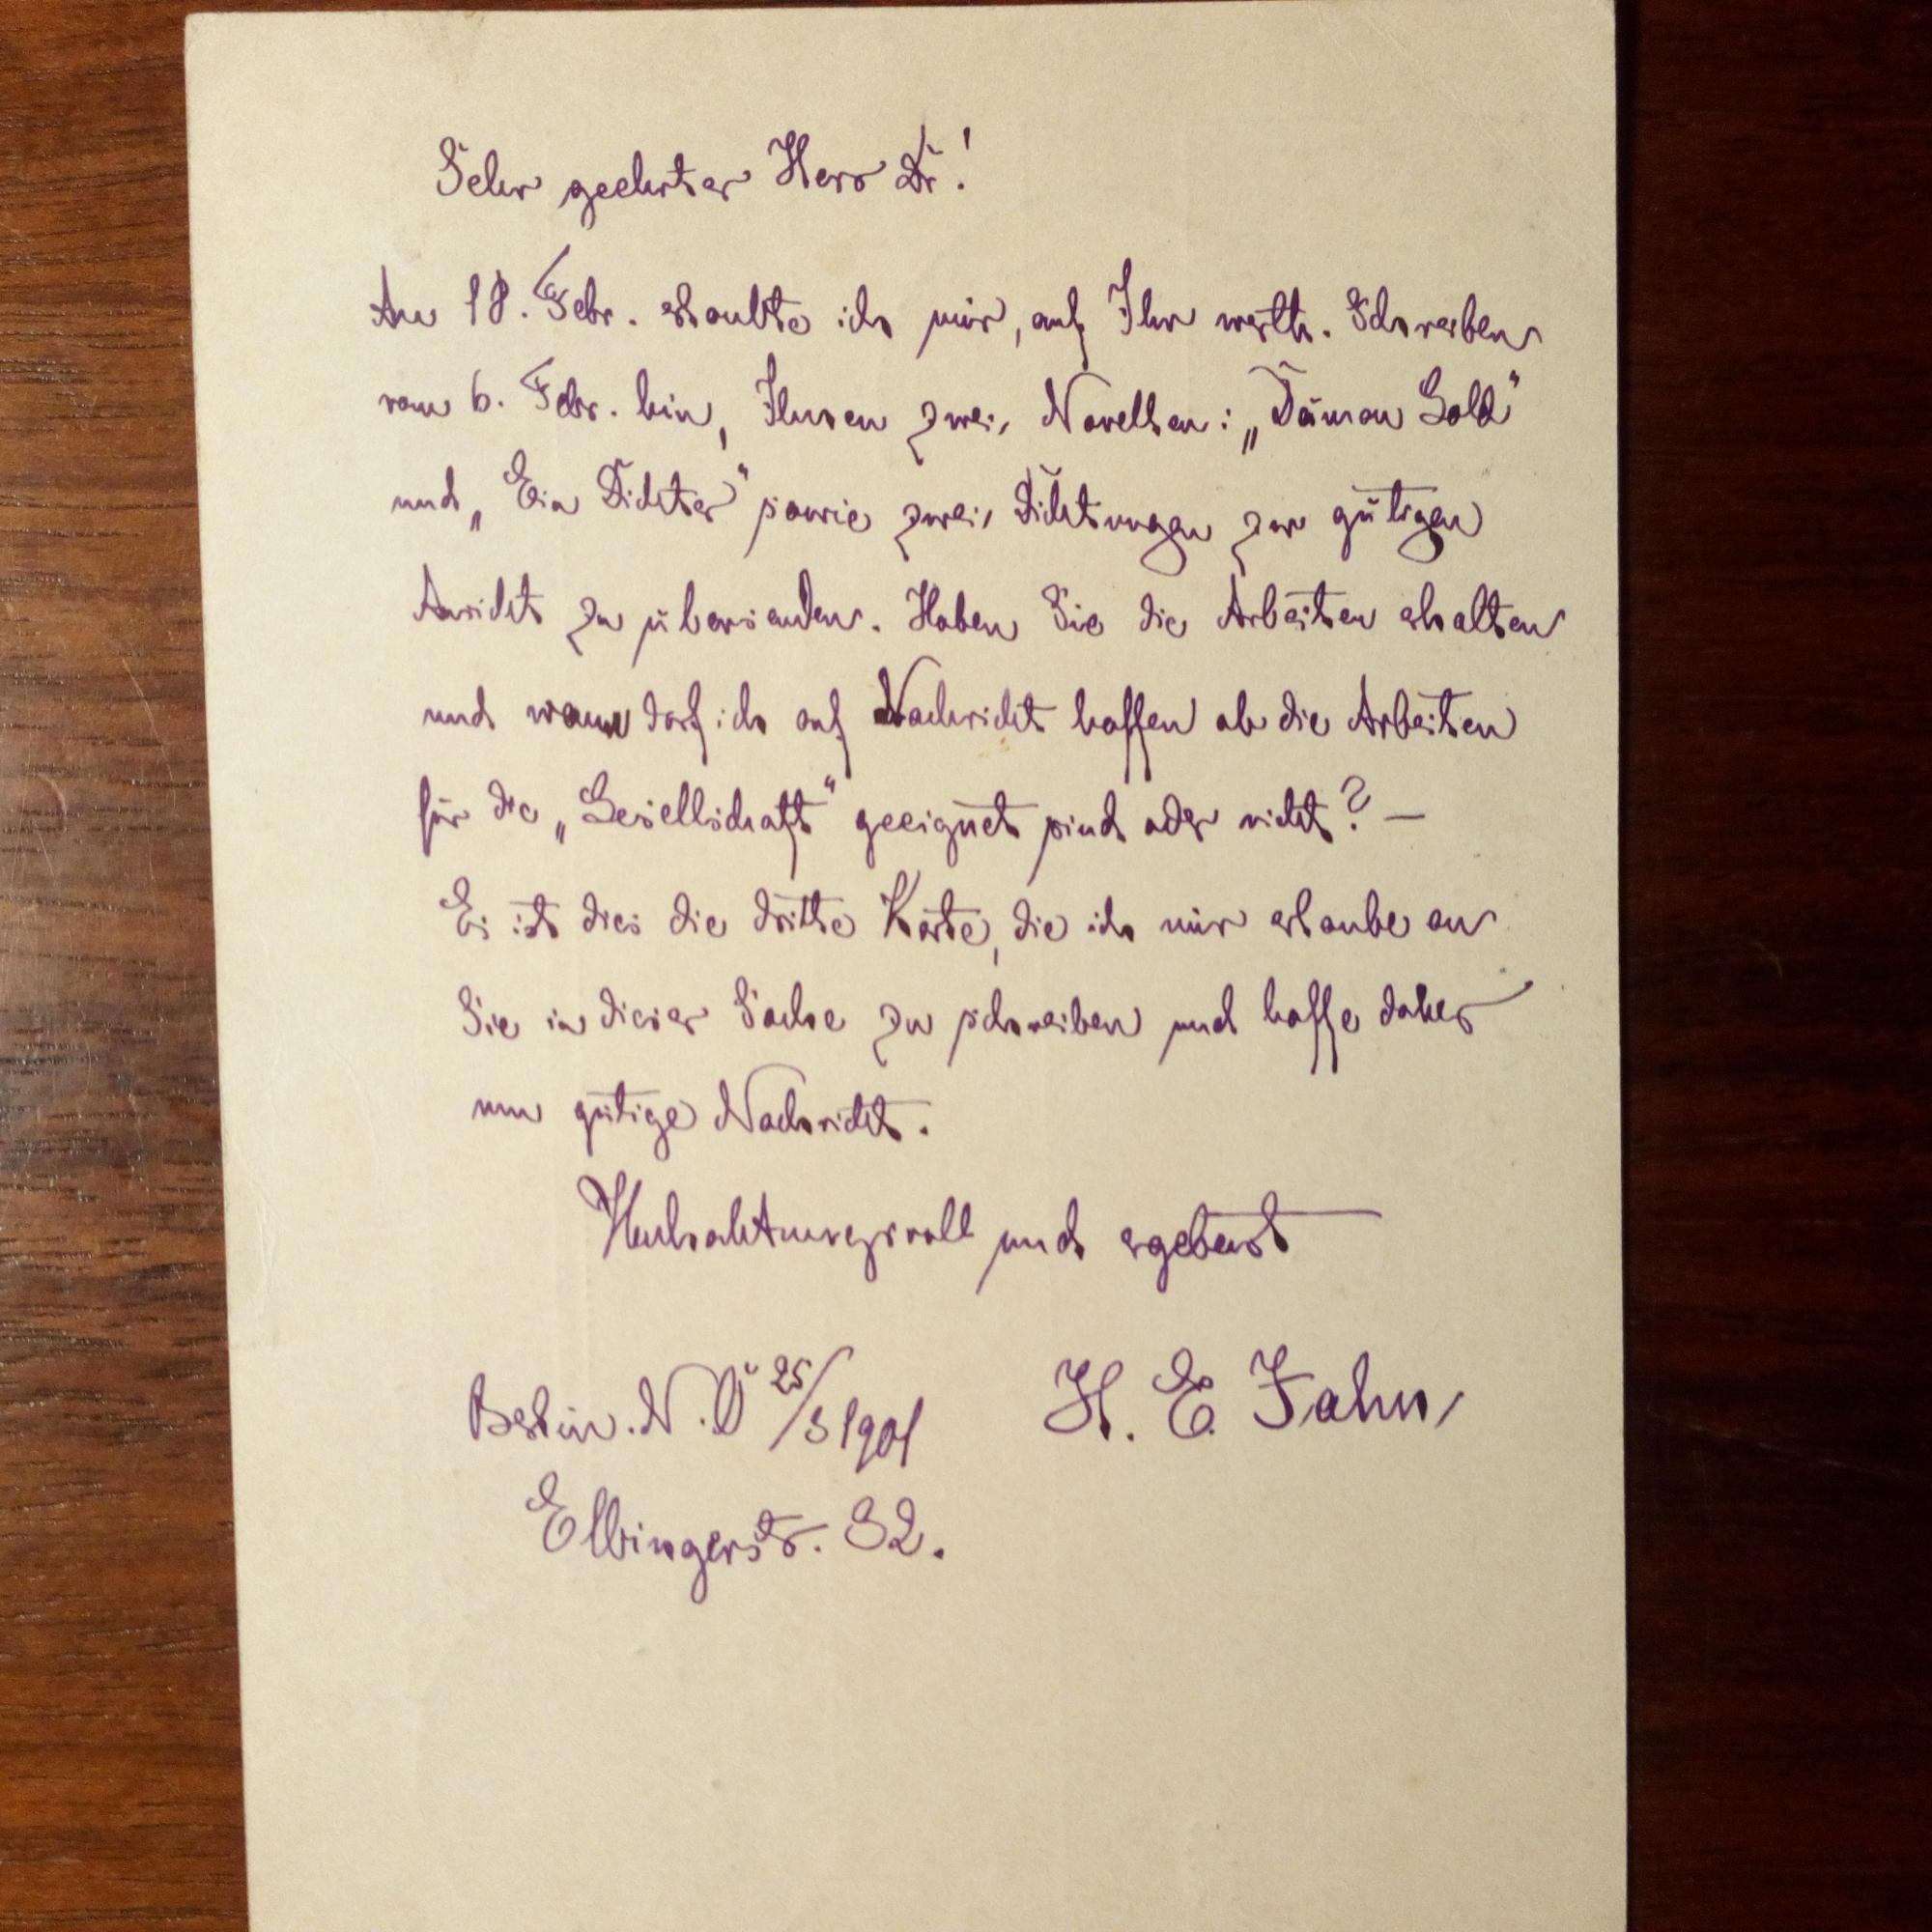 Sehr geehrter Herr Dr.!
Am 18. Febr. erlaubte ich mir, auf Ihr werth. Schreiben
vom 6. Febr. hin, Ihnen zwei Novellen: „Dämon Gold“
und „Ein Dichter“ sowie zwei Dichtungen zur gütigen
Ansicht zu übersenden. Haben Sie die Arbeiten erhalten
und wann darf ich auf Nachricht hoffen ob die Arbeiten
für die „Gesellschaft“ geeignet sind oder nicht? —
Es ist dies die dritte Karte, die ich mir erlaube an
Sie in dieser Sache zu schreiben und hoffe daher
um gütige Nachricht.
Hochachtungsvoll und ergebenst
Berlin. N.O 25/3 1901 H. E. Jahn
Elbingerstr. 32.